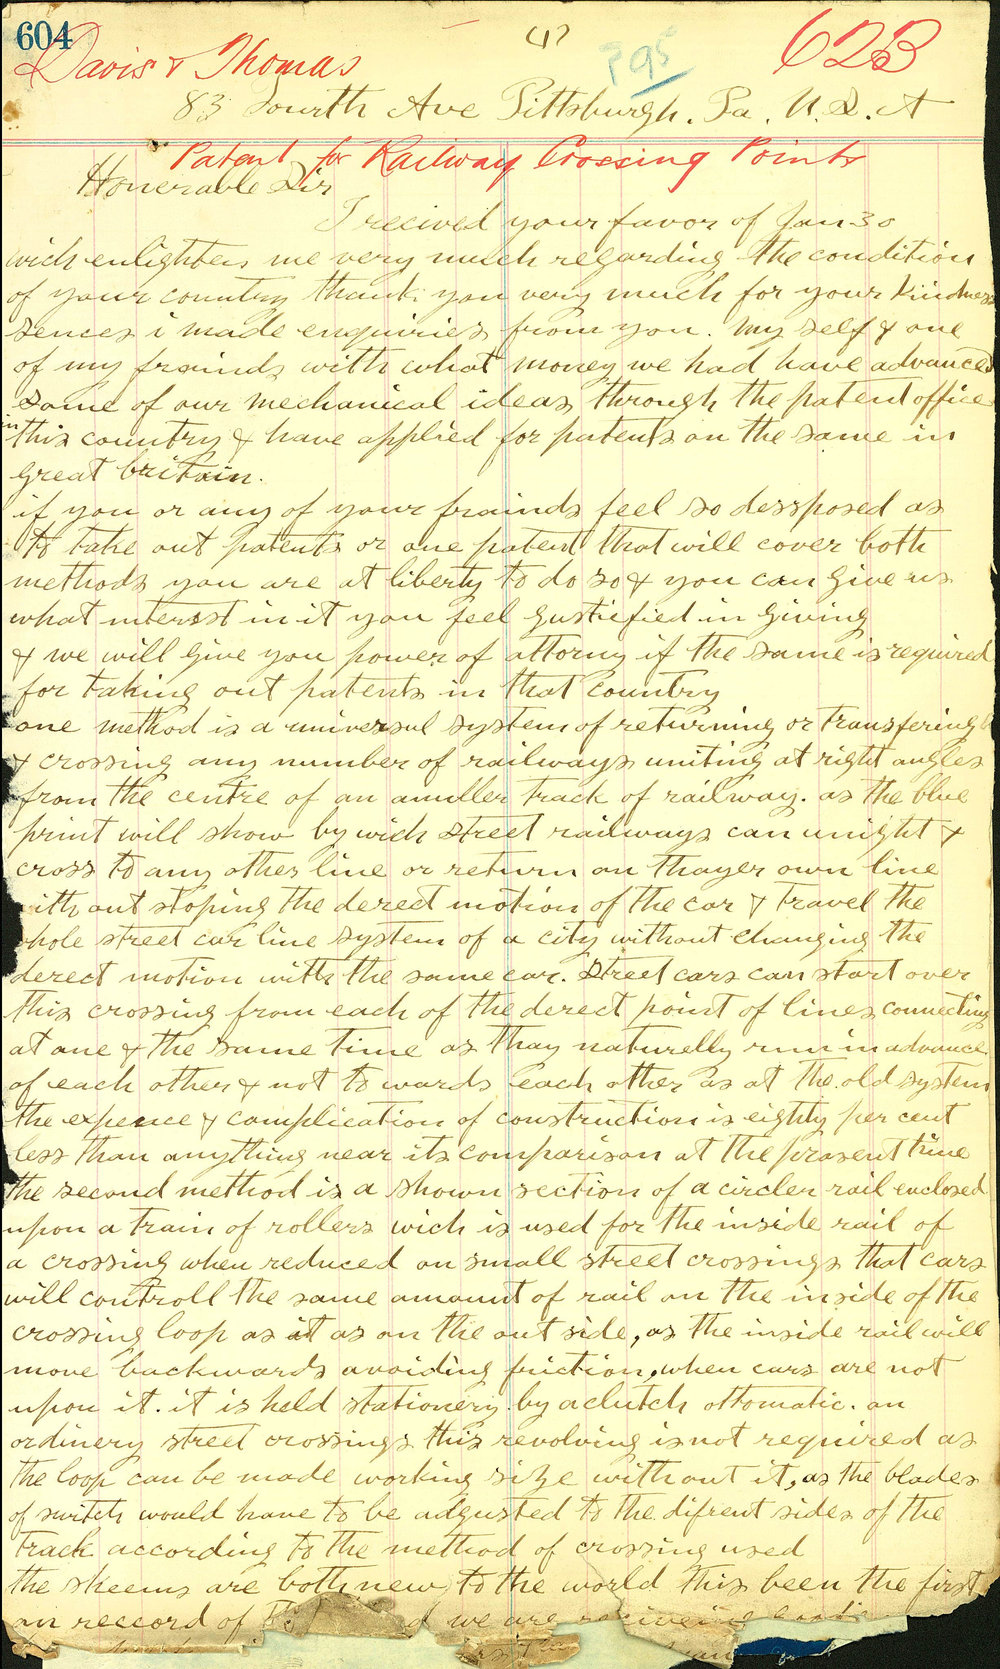 604
Davis & Thomas
(1)
395
623
83 Fourth Ave Pittsburgh. Pa. U.S.A
Patent for Railway Crossing Points
Honerable Sir
I recived your favor of Jan 30
wich enlightens me very much regarding the condition
of your country thank you very much for your kindness
sences i made enquiries from you. my self & one
of my frainds with what money we had have advanced
some of our mechanical ideas through the patent office
in this country & have applied for patents on the same in
great britain.
if you or any of your frainds feel so dessposed as
to take out patents or one patent that will cover both
methods you are at liberty to do so & you can give us
what interest in it you feel gustiefied in giving
& we will give you power of attorny if the same is required
for taking out patents in that country
one method is a universul system of returning or transfering
& crossing any number of railways uniting at right angles
from the centre of an amller track of railway. as the blue
print will show by wich street railways can unight &
cross to any other line or return on thayer own line
ithout stoping the derect motion of the car & travel the
hole street car line system of a city without changing the
derect motion with the same car. Street cars can start over
this crossing from each of the derect point of lines connecting
at one & the same time as thay naturelly run in advance
of each other & not to wards each other as at the old system
the expence & complication of construction is eighty per cent
less than anything near its comparison at the prasent time
the second method is a shown section of a circler rail enclosed
upon a train of rollers wich is used for the inside rail of
a crossing when reduced on small street crossings that cars
will controll the same amount of rail on the inside of the
crossing loop as it as on the out side, as the inside rail will
move backwards avoiding friction, when cars are not
upon it. it is held stationery by a clutch ottomatic. on
ordinery street crossings this revolving is not required as
the loop can be made working size without it, as the blades
of switch would have to be adgusted to the difrent sides of the
track according to the method of crossing used
the skeems are both new to the world this been the first
on reccord of we are